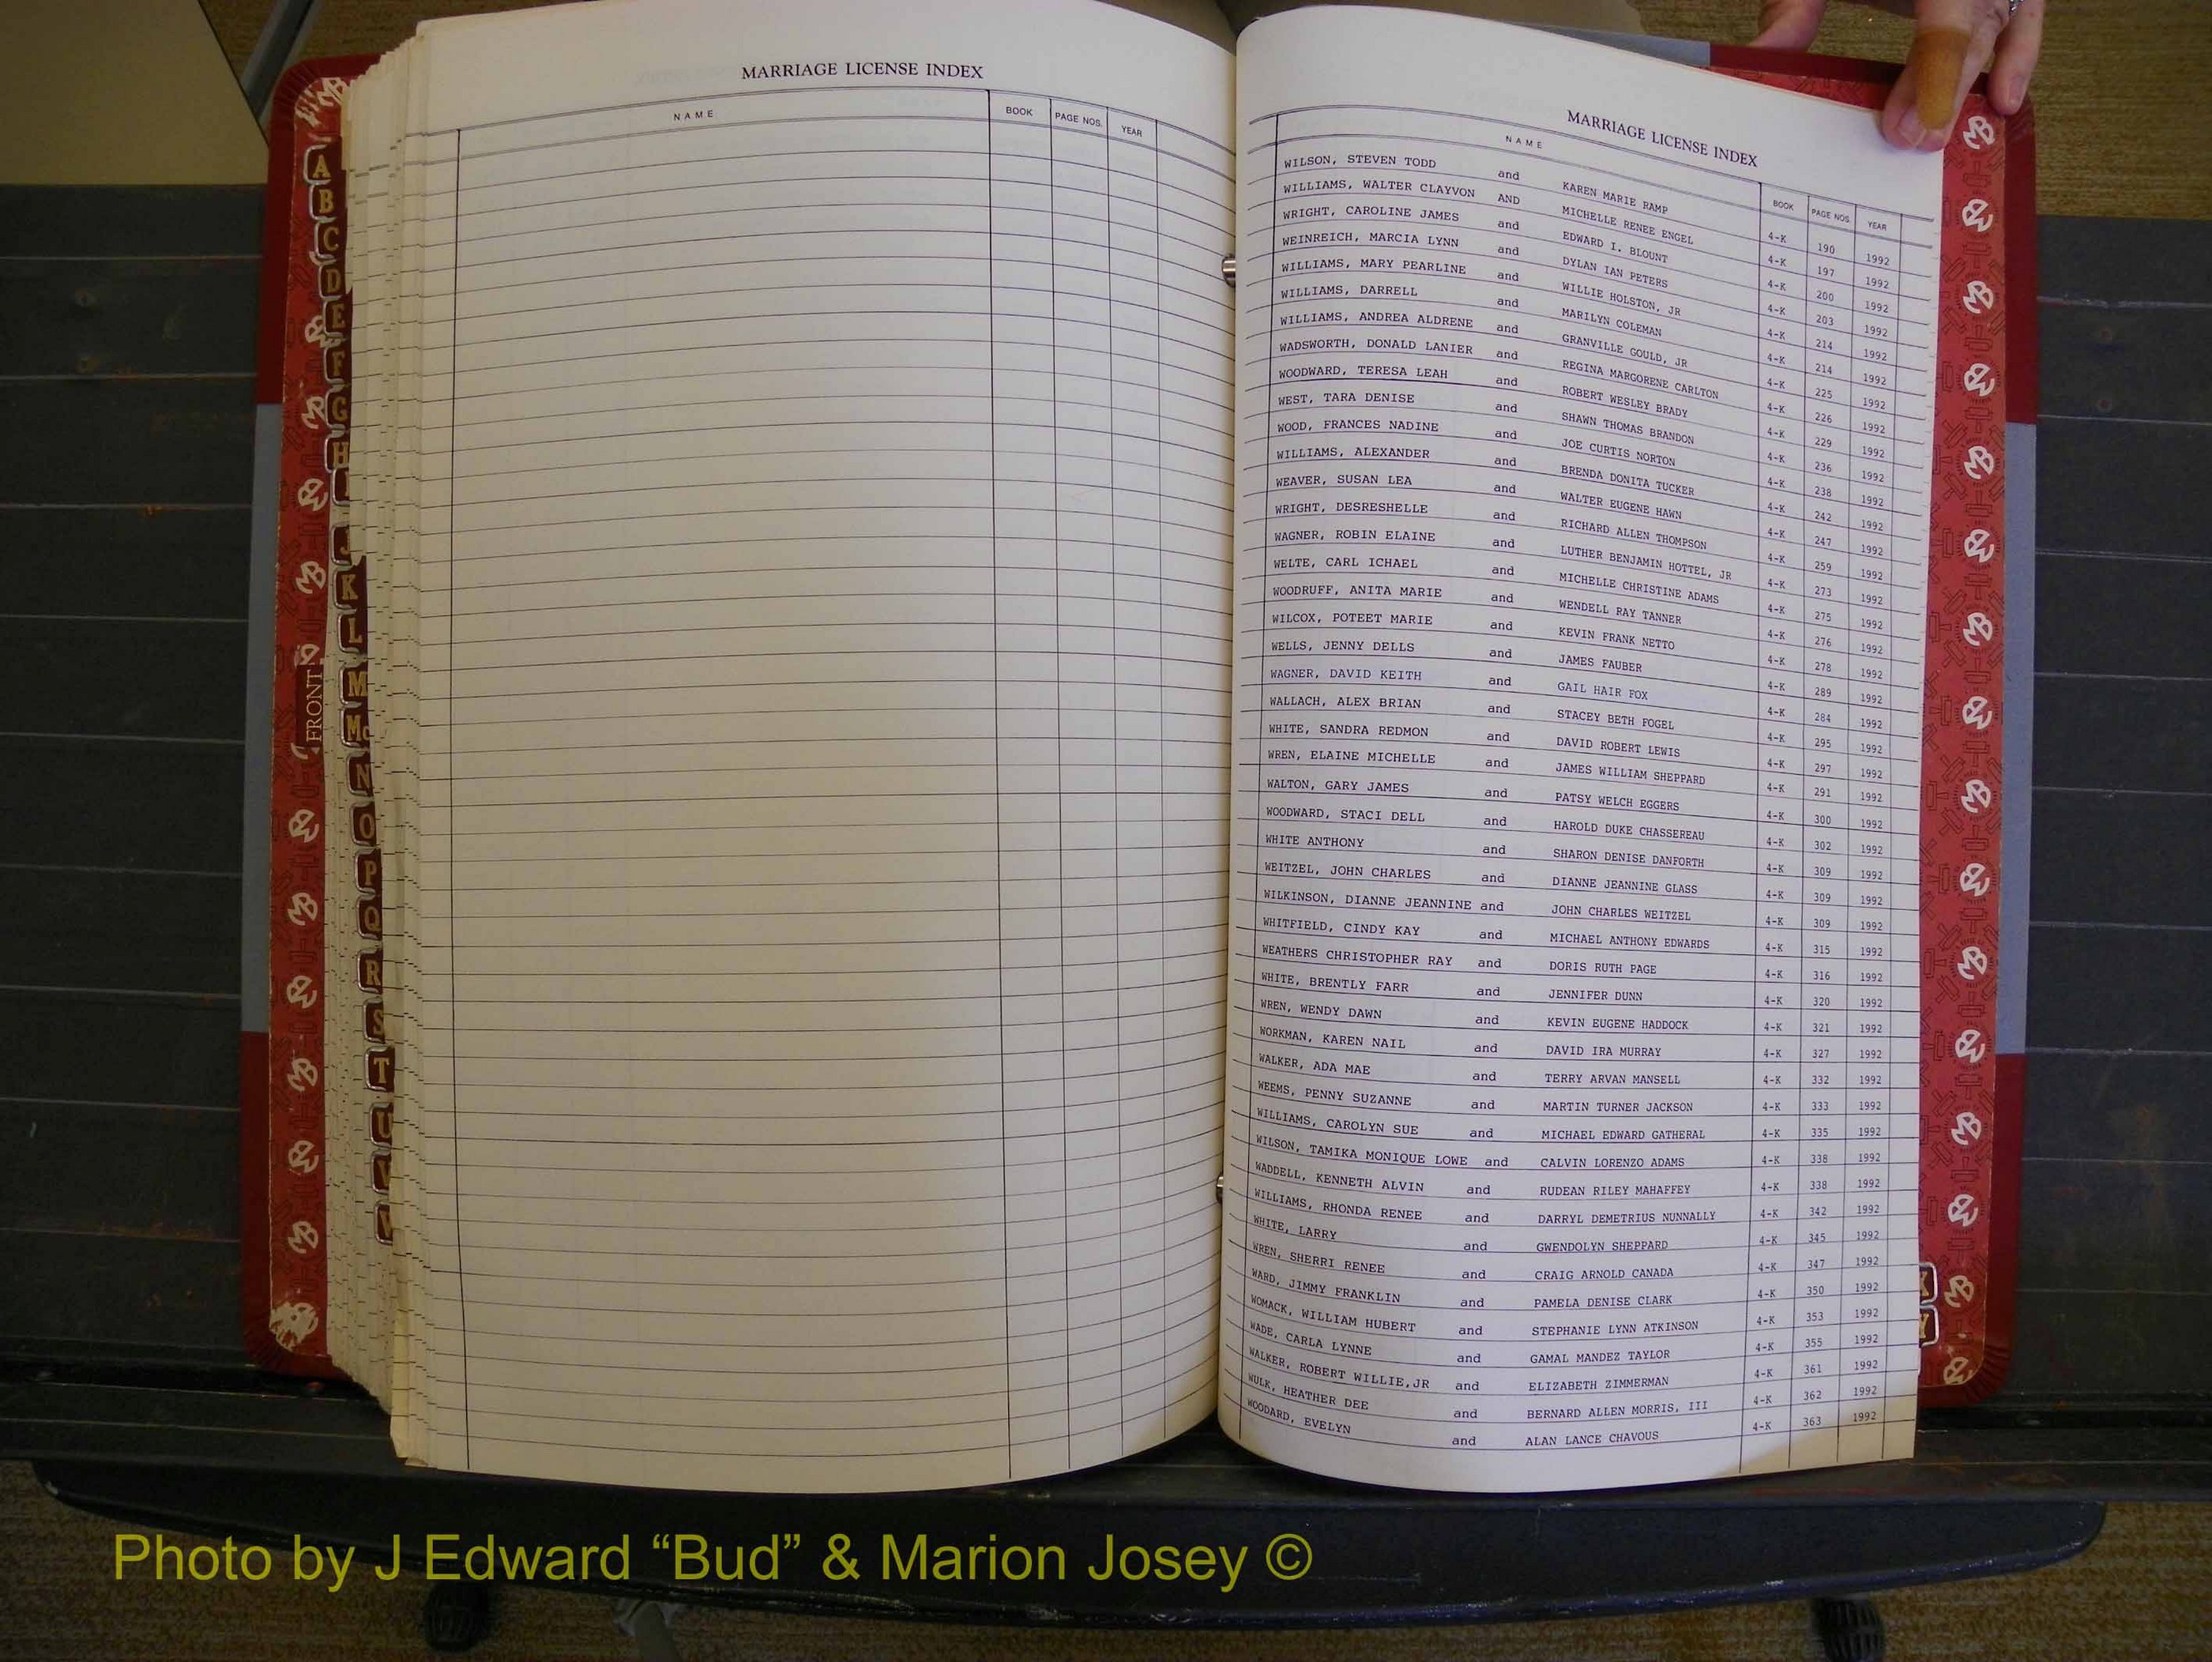 MARRIAGE LICENSE INDEX
NAME BOOK PAGE NOS. YEAR
A
B
C
D
E
F
G
H
I
J
K
L
M
Mc
N
O
P
Q
R
S
T
U
V
W
FRONT
MARRIAGE LICENSE INDEX
NAME BOOK PAGE NOS YEAR
WILSON, STEVEN TODD and KAREN MARIE RAMP 4-K 190 1992
WILLIAMS, WALTER CLAYVON AND MICHELLE RENEE ENGEL 4-K 197 1992
WRIGHT, CAROLINE JAMES and EDWARD I. BLOUNT 4-K 200 1992
WEINREICH, MARCIA LYNN and DYLAN IAN PETERS 4-K 203 1992
WILLIAMS, MARY PEARLINE and WILLIE HOLSTON, JR 4-K 214 1992
WILLIAMS, DARRELL and MARILYN COLEMAN 4-K 214 1992
WILLIAMS, ANDREA ALDRENE and GRANVILLE GOULD, JR 4-K 225 1992
WADSWORTH, DONALD LANIER and REGINA MARGORENE CARLTON 4-K 226 1992
WOODWARD, TERESA LEAH and ROBERT WESLEY BRADY 4-K 229 1992
WEST, TARA DENISE and SHAWN THOMAS BRANDON 4-K 236 1992
WOOD, FRANCES NADINE and JOE CURTIS NORTON 4-K 238 1992
WILLIAMS, ALEXANDER and BRENDA DONITA TUCKER 4-K 242 1992
WEAVER, SUSAN LEA and WALTER EUGENE HAWN 4-K 247 1992
WRIGHT, DESRESHELLE and RICHARD ALLEN THOMPSON 4-K 259 1992
WAGNER, ROBIN ELAINE and LUTHER BENJAMIN HOTTEL, JR 4-K 273 1992
WELTE, CARL ICHAEL and MICHELLE CHRISTINE ADAMS 4-K 275 1992
WOODRUFF, ANITA MARIE and WENDELL RAY TANNER 4-K 276 1992
WILCOX, POTEET MARIE and KEVIN FRANK NETTO 4-K 278 1992
WELLS, JENNY DELLS and JAMES FAUBER 4-K 289 1992
WAGNER, DAVID KEITH and GAIL HAIR FOX 4-K 284 1992
WALLACH, ALEX BRIAN and STACEY BETH FOGEL 4-K 295 1992
WHITE, SANDRA REDMON and DAVID ROBERT LEWIS 4-K 297 1992
WREN, ELAINE MICHELLE and JAMES WILLIAM SHEPPARD 4-K 291 1992
WALTON, GARY JAMES and PATSY WELCH EGGERS 4-K 300 1992
WOODWARD, STACI DELL and HAROLD DUKE CHASSEREAU 4-K 302 1992
WHITE ANTHONY and SHARON DENISE DANFORTH 4-K 309 1992
WEITZEL, JOHN CHARLES and DIANNE JEANNINE GLASS 4-K 309 1992
WILKINSON, DIANNE JEANNINE and JOHN CHARLES WEITZEL 4-K 309 1992
WHITFIELD, CINDY KAY and MICHAEL ANTHONY EDWARDS 4-K 315 1992
WEATHERS CHRISTOPHER RAY and DORIS RUTH PAGE 4-K 316 1992
WHITE, BRENTLY FARR and JENNIFER DUNN 4-K 320 1992
WREN, WENDY DAWN and KEVIN EUGENE HADDOCK 4-K 321 1992
WORKMAN, KAREN NAIL and DAVID IRA MURRAY 4-K 327 1992
WALKER, ADA MAE and TERRY ARVAN MANSELL 4-K 332 1992
WEEMS, PENNY SUZANNE and MARTIN TURNER JACKSON 4-K 333 1992
WILLIAMS, CAROLYN SUE and MICHAEL EDWARD GATHERAL 4-K 335 1992
WILSON, TAMIKA MONIQUE LOWE and CALVIN LORENZO ADAMS 4-K 338 1992
WADDELL, KENNETH ALVIN and RUDEAN RILEY MAHAFFEY 4-K 338 1992
WILLIAMS, RHONDA RENEE and DARRYL DEMETRIUS NUNNALLY 4-K 342 1992
WHITE, LARRY and GWENDOLYN SHEPPARD 4-K 345 1992
WREN, SHERRI RENEE and CRAIG ARNOLD CANADA 4-K 347 1992
WARD, JIMMY FRANKLIN and PAMELA DENISE CLARK 4-K 350 1992
WOMACK, WILLIAM HUBERT and STEPHANIE LYNN ATKINSON 4-K 353 1992
WADE, CARLA LYNNE and GAMAL MANDEZ TAYLOR 4-K 355 1992
WALKER, ROBERT WILLIE,JR and ELIZABETH ZIMMERMAN 4-K 361 1992
WULK, HEATHER DEE and BERNARD ALLEN MORRIS, III 4-K 362 1992
WOODARD, EVELYN and ALAN LANCE CHAVOUS 4-K 363 1992
X
Y
Photo by J Edward “Bud” & Marion Josey ©